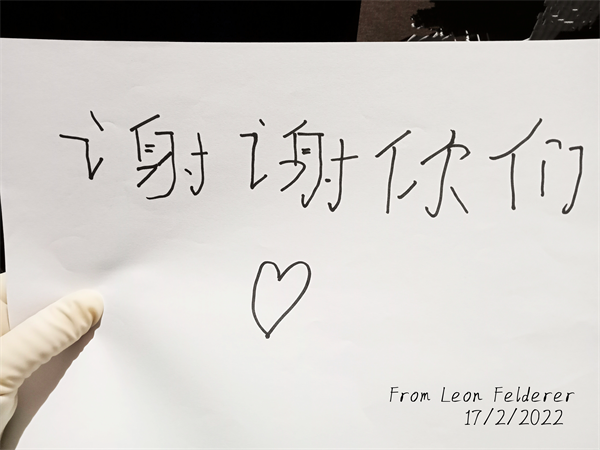 谢谢你们
From Leon Felderer
17/2/2022